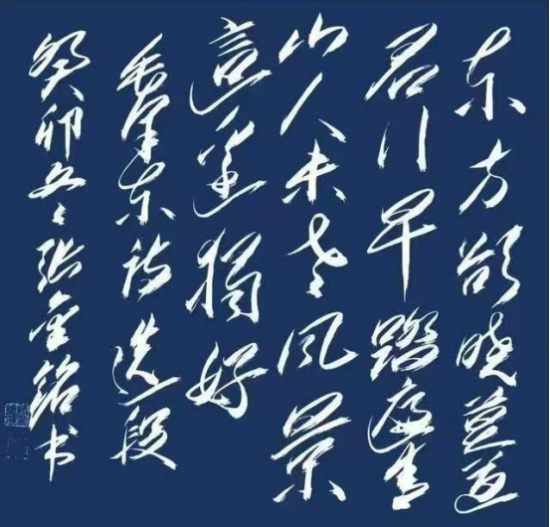 东方欲晓莫道
君行早踏遍青
山人未老风景
这边独好
毛泽东诗选一段
癸卯冬张金铭书